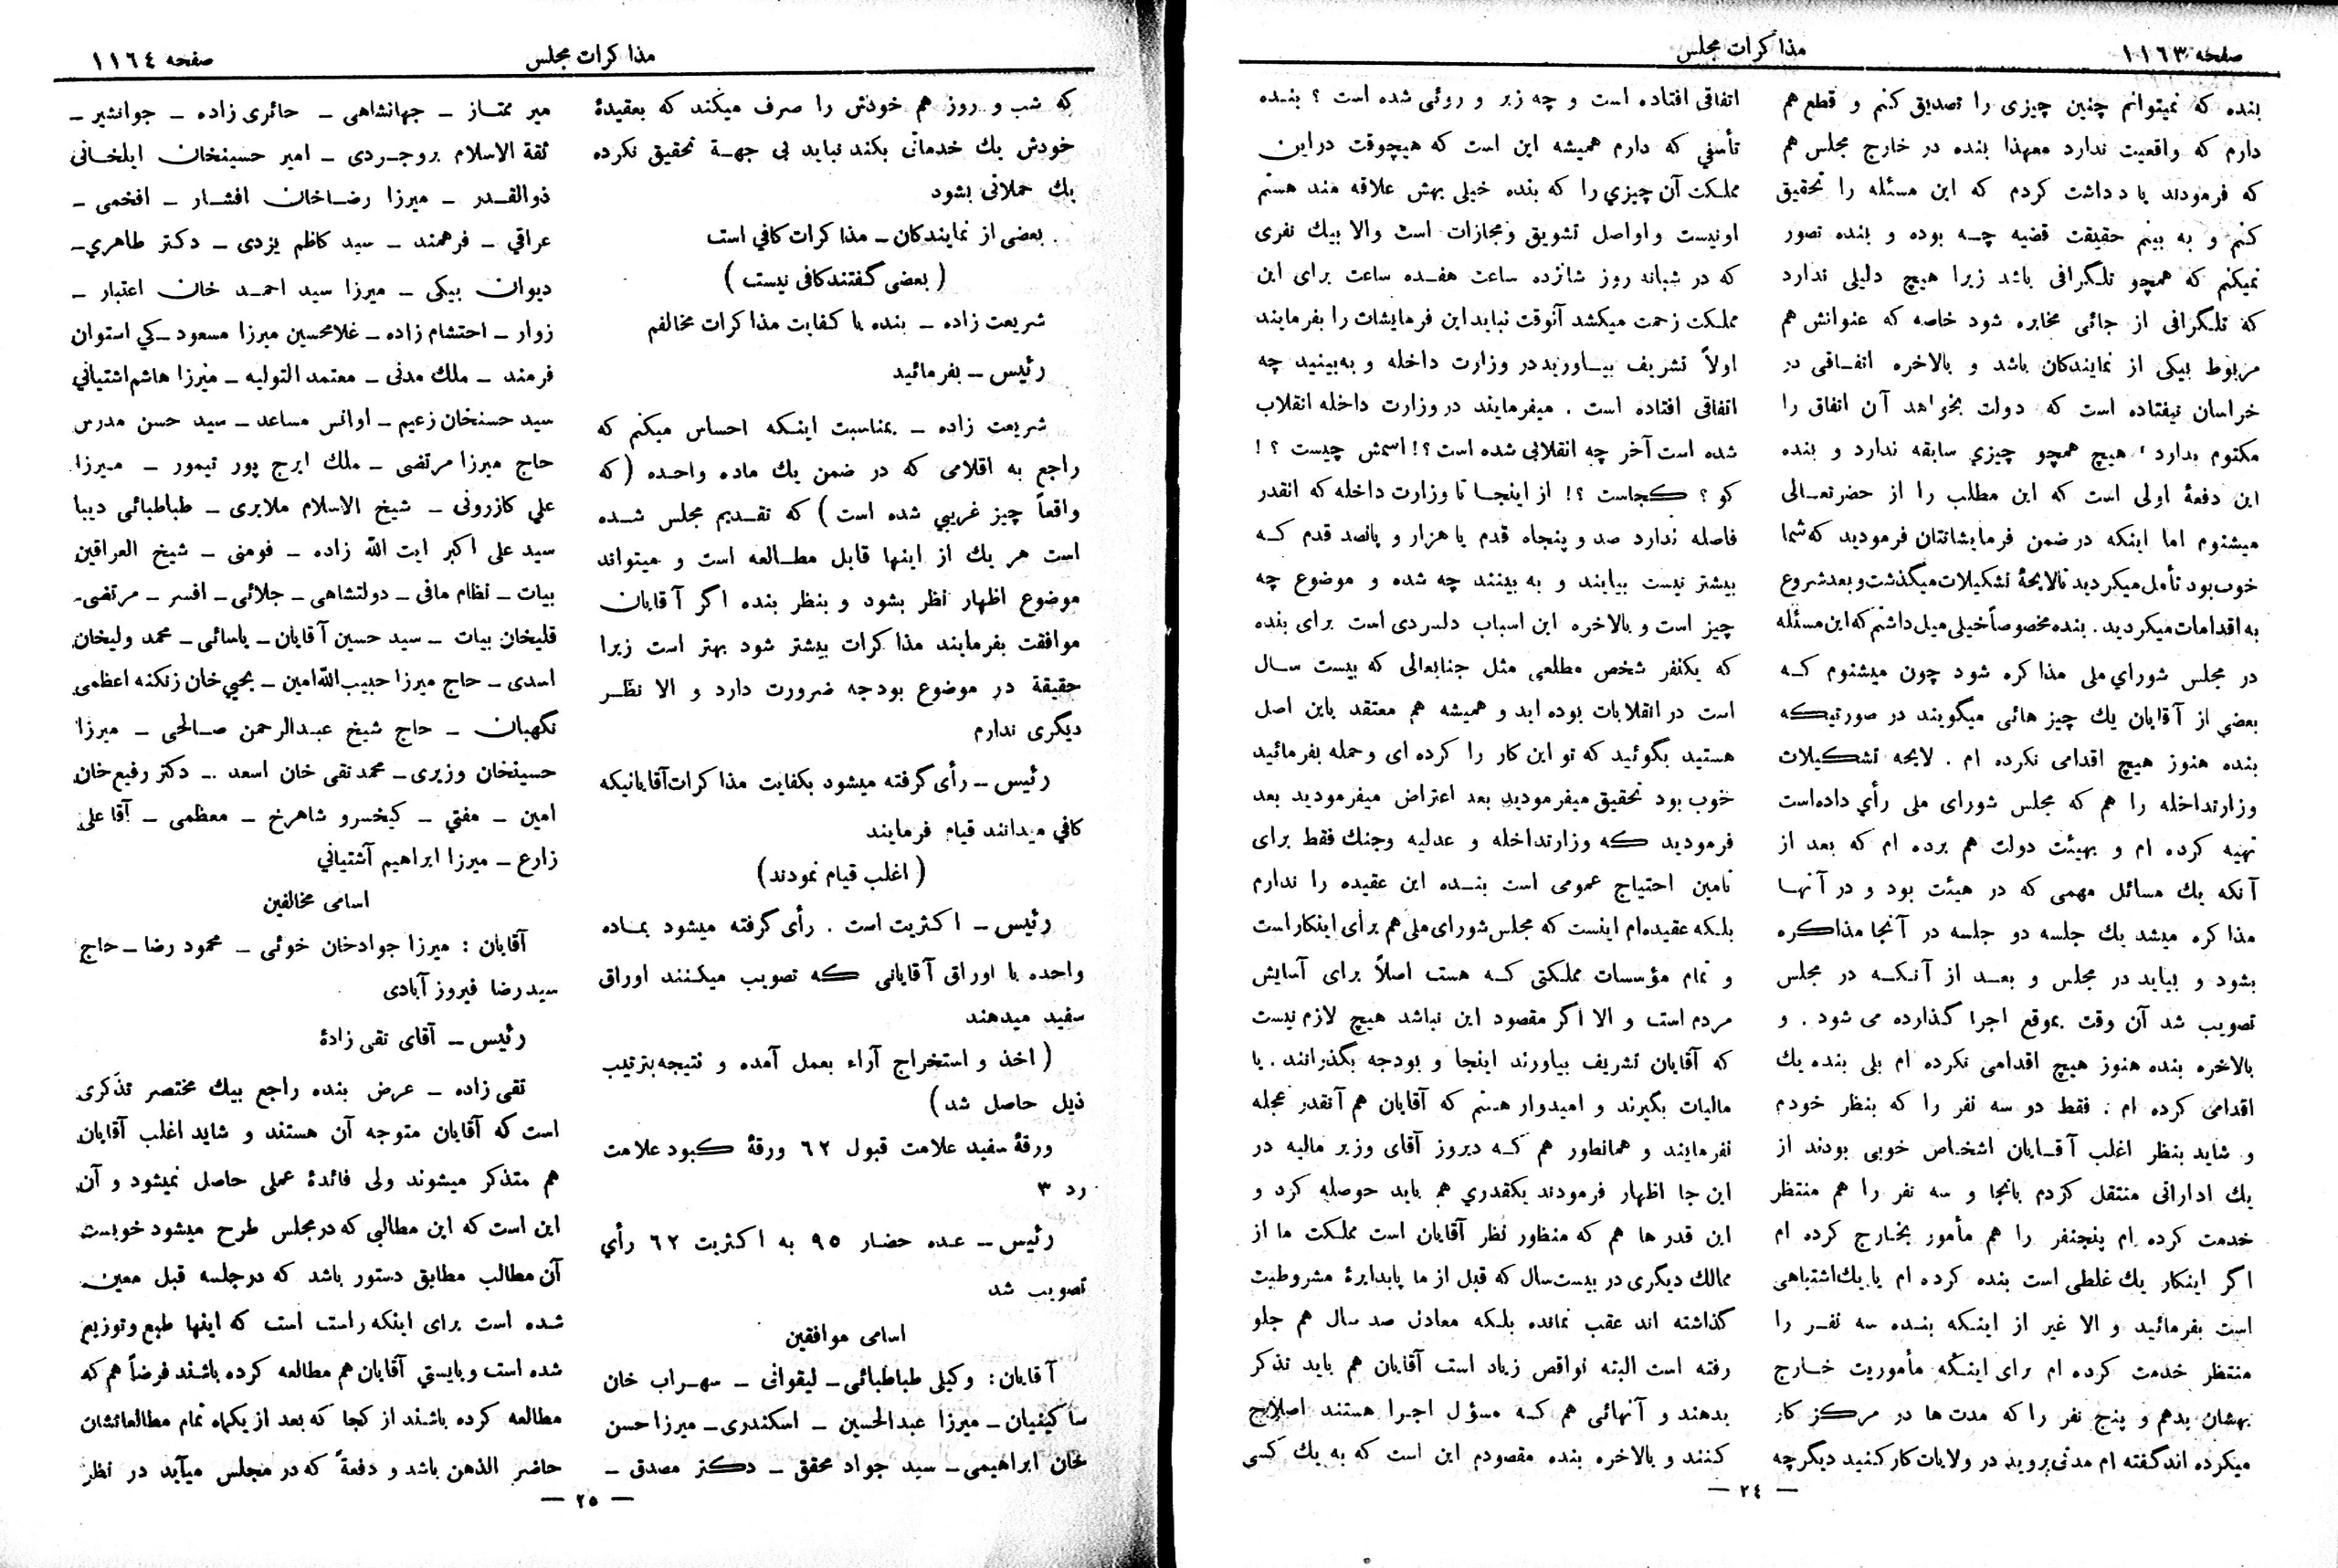 صفحه ۱۱۶۳
مذاکرات مجلس
بنده که نمیتوانم چنین چیزی را تصدیق کنم و قطع هم
دارم که واقعیت ندارد معهذا بنده در خارج مجلس هم
که فرمودند یادداشت کردم که این مسئله را تحقیق
کنم و به بینم حقیقت قضیه چه بوده و بنده تصور
نمیکنم که همچو تلگرافی باشد زیرا هیچ دلیلی ندارد
که تلگرافی از جائی مخابره شود خاصه که عنوانش هم
مربوط بیکی از نمایندکان باشد و بالاخره اتفاقی در
خراسان نیفتاده است که دولت بخواهد آن اتفاق را
مکتوم بدارد ، هیچ همچو چیزي سابقه ندارد و بنده
این دفعهٔ اولی است که این مطلب را از حضرتعالی
میشنوم اما اینکه در ضمن فرمایشاتتان فرمودید که شما
خوب بود تأمل میکردید تالایحهٔ تشکیلات میگذشت و بعد شروع
به اقدامات میکردید . بنده مخصوصاً خیلی میل داشتم که این مسئله
در مجلس شورای ملی مذاکره شود چون میشنوم که
بعضی از آقایان یك چیز هائی میگویند در صورتیکه
بنده هنوز هیچ اقدامی نکرده ام . لایحه تشکیلات
وزارتداخله را هم که مجلس شورای ملی رأي داده‌است
تهیه کرده ام و بهیئت دولت هم برده ام که بعد از
آنکه یك مسائل مهمی که در هیئت بود و در آنها
مذاکره میشد یك جلسه دو جلسه در آنجا مذاکره
بشود و بیاید در مجلس و بعد از آنکه در مجلس
تصویب شد آن وقت بموقع اجرا گذارده می شود . و
بالاخره بنده هنوز هیچ اقدامی نکرده ام بلی بنده یك
اقدامی کرده ام : فقط دو سه نفر را که بنظر خودم
و شاید بنظر اغلب آقایان اشخاص خوبی بودند از
یك اداراتی منتقل کردم بانجا و سه نفر را هم منتظر
خدمت کرده ام پنجنفر را هم مأمور بخارج کرده ام
اگر اینکار یك غلطی است بنده کرده ام یا یك‌اشتباهی
است بفرمائید و الا غیر از اینکه بنده سه نفر را
منتظر خدمت کرده ام برای اینکه مأموریت خارج
بهشان بدهم و پنج نفر را که مدت ها در مرکز کار
میکرده اند گفته ام مدتی بروید در ولایات کار کنید دیگر چه
اتفاقی افتاده است و چه زیر و روئی شده است ؟ بنده
تأسفي که دارم همیشه این است که هیچوقت دراین
مملکت آن چیزي را که بنده خیلی بهش علاقه مند هستم
او نیست و او اصل تشویق و مجازات است والا بیك نفری
که در شبانه روز شانزده ساعت هفده ساعت برای این
مملکت زحمت میکشد آنوقت نباید این فرمایشات را بفرمایند
اولاً تشریف بیاورید در وزارت داخله و به‌بینید چه
اتفاقی افتاده است . میفرمایند در وزارت داخله انقلاب
شده است آخر چه انقلابی شده است ؟! اسمش چیست ؟ !
کو ؟ کجاست ؟! از اینجا تا وزارت داخله که انقدر
فاصله ندارد صد و پنجاه قدم یا هزار و پانصد قدم که
بیشتر نیست بیایند و به بینند چه شده و موضوع چه
چیز است و بالاخره این اسباب دلسردی است برای بنده
که یکنفر شخص مطلعی مثل جنابعالی که بیست سال
است در انقلابات بوده اید و همیشه هم معتقد باین اصل
هستید بگوئید که تو این کار را کرده ای و حمله بفرمائید
خوب بود تحقیق میفرمودید بعد اعتراض میفرمودید بعد
فرمودید که وزارتداخله و عدلیه وجنك فقط برای
تامین احتیاج عمومی است بنده این عقیده را ندارم
بلکه عقیده‌ام اینست که مجلس شورای ملی هم برای اینکار است
و تمام مؤسسات مملکتی که هست اصلاً برای آسایش
مردم است و الا اگر مقصود این نباشد هیچ لازم نیست
که آقایان تشریف بیاورند اینجا و بودجه بگذرانند . یا
مالیات بگیرند و امیدوار هستم که آقایان هم آنقدر عجله
نفرمایند و همانطور هم که دیروز آقای وزیر مالیه در
این جا اظهار فرمودند یکقدري هم باید حوصله کرد و
این قدر ها هم که منظور نظر آقایان است مملکت ما از
ممالك دیگری در بیست سال که قبل از ما پا بدایرهٔ مشروطیت
گذاشته اند عقب نمانده بلکه معادل صد سال هم جلو
رفته است البته نواقص زیاد است آقایان هم باید تذکر
بدهند و آنهائی هم که مسؤل اجرا هستند اصلاح
کنند و بالاخره بنده مقصودم این است که به یك کسی
— ۲٤ —
صفحه ۱۱٦٤
مذاکرات مجلس
که شب و روز هم خودش را صرف میکند که بعقیدهٔ
خودش یك خدماتی بکند نباید بی جهة تحقیق نکرده
یك حملاتی بشود
بعضی از نمایندکان ــ مذاکرات کافي است
( بعضی گفتند کافی نیست )
شریعت زاده ــ بنده با کفایت مذاکرات مخالفم
رئیس ــ بفرمائید
شریعت زاده ــ بمناسبت اینکه احساس میکنم که
راجع به اقلامی که در ضمن یك ماده واحده ( که
واقعاً چیز غریبي شده است ) که تقدیم مجلس شده
است هر یك از اینها قابل مطالعه است و میتواند
موضوع اظهار نظر بشود و بنظر بنده اگر آقایان
موافقت بفرمایند مذاکرات بیشتر شود بهتر است زیرا
حقیقة در موضوع بودجه ضرورت دارد و الا نظر
دیگری ندارم
رئیس ــ رأی گرفته میشود بکفایت مذاکرات آقایانیکه
کافي میدانند قیام فرمایند
( اغلب قیام نمودند )
رئیس ــ اکثریت است . رأی گرفته میشود بماده
واحده با اوراق آقایانی که تصویب میکنند اوراق
سفید میدهند
( اخذ و استخراج آراء بعمل آمده و نتیجه بترتیب
ذیل حاصل شد )
ورقهٔ سفید علامت قبول ٦۲ ورقهٔ کبود علامت
رد ۳
رئیس ــ عده حضار ۹٥ به اکثریت ٦۲ رأي
تصویب شد
اسامی موافقین
آقایان: وکیلی طباطبائی ــ لیقوانی ــ سهراب خان
ساکینیان ــ میرزا عبدالحسین ــ اسکندری ــ میرزا حسن
خان ابراهیمی ــ سید جواد محقق ــ دکتر مصدق ــ
میر ممتاز ــ جهانشاهی ــ حائری زاده ــ جوانشیر ــ
ثقة الاسلام بروجردی ــ امیر حسینخان ایلخانی
ذوالقدر ــ میرزا رضاخان افشار ــ افخمی ــ
عراقي ــ فرهمند ــ سید کاظم یزدی ــ دکتر طاهري ــ
دیوان بیکی ــ میرزا سید احمد خان اعتبار ــ
زوار ــ احتشام زاده ــ غلامحسین میرزا مسعود ــ کي استوان
فرمند ــ ملك مدنی ــ معتمد التولیه ــ میرزا هاشم اشتیاني
سید حسنخان زعیم ــ اوانس مساعد ــ سید حسن مدرس
حاج میرزا مرتضی ــ ملك ایرج پور تیمور ــ میرزا
علي کازرونی ــ شیخ الاسلام ملایری ــ طباطبائی دیبا
سید علی اکبر ایت الله زاده ــ فومنی ــ شیخ العراقین
بیات ــ نظام مافی ــ دولتشاهی ــ جلائی ــ افسر ــ مرتضی
قلیخان بیات ــ سید حسین آقایان ــ یاسائی ــ محمد ولیخان
اسدی ــ حاج میرزا حبیب الله امین ــ یحیي خان زنکنه اعظمی
نگهبان ــ حاج شیخ عبدالرحمن صالحی ــ میرزا
حسینخان وزیری ــ محمد تقی خان اسعد ــ دکتر رفیع خان
امین ــ مفتي ــ کیخسرو شاهرخ ــ معظمی ــ آقا علی
زارع ــ میرزا ابراهیم آشتیاني
اسامی مخالفین
آقایان : میرزا جوادخان خوئی ــ محمود رضا ــ حاج
سید رضا فیروزآبادی
رئیس ــ آقای تقی زادهٔ
تقی زاده ــ عرض بنده راجع بیك مختصر تذکری
است که آقایان متوجه آن هستند و شاید اغلب آقایان
هم متذکر میشوند ولی فائدهٔ عملی حاصل نمیشود و آن
این است که این مطالبی که در مجلس طرح میشود خوبست
آن مطالب مطابق دستور باشد که در جلسه قبل معین
شده است برای اینکه راست است که اینها طبع و توزیع
شده است و بایستي آقایان هم مطالعه کرده باشند فرضاً هم که
مطالعه کرده باشند از کجا که بعد از یکماه تمام مطالعاتشان
حاضر الذهن باشد و دفعةً که در مجلس میآید در نظر
— ۲٥ —